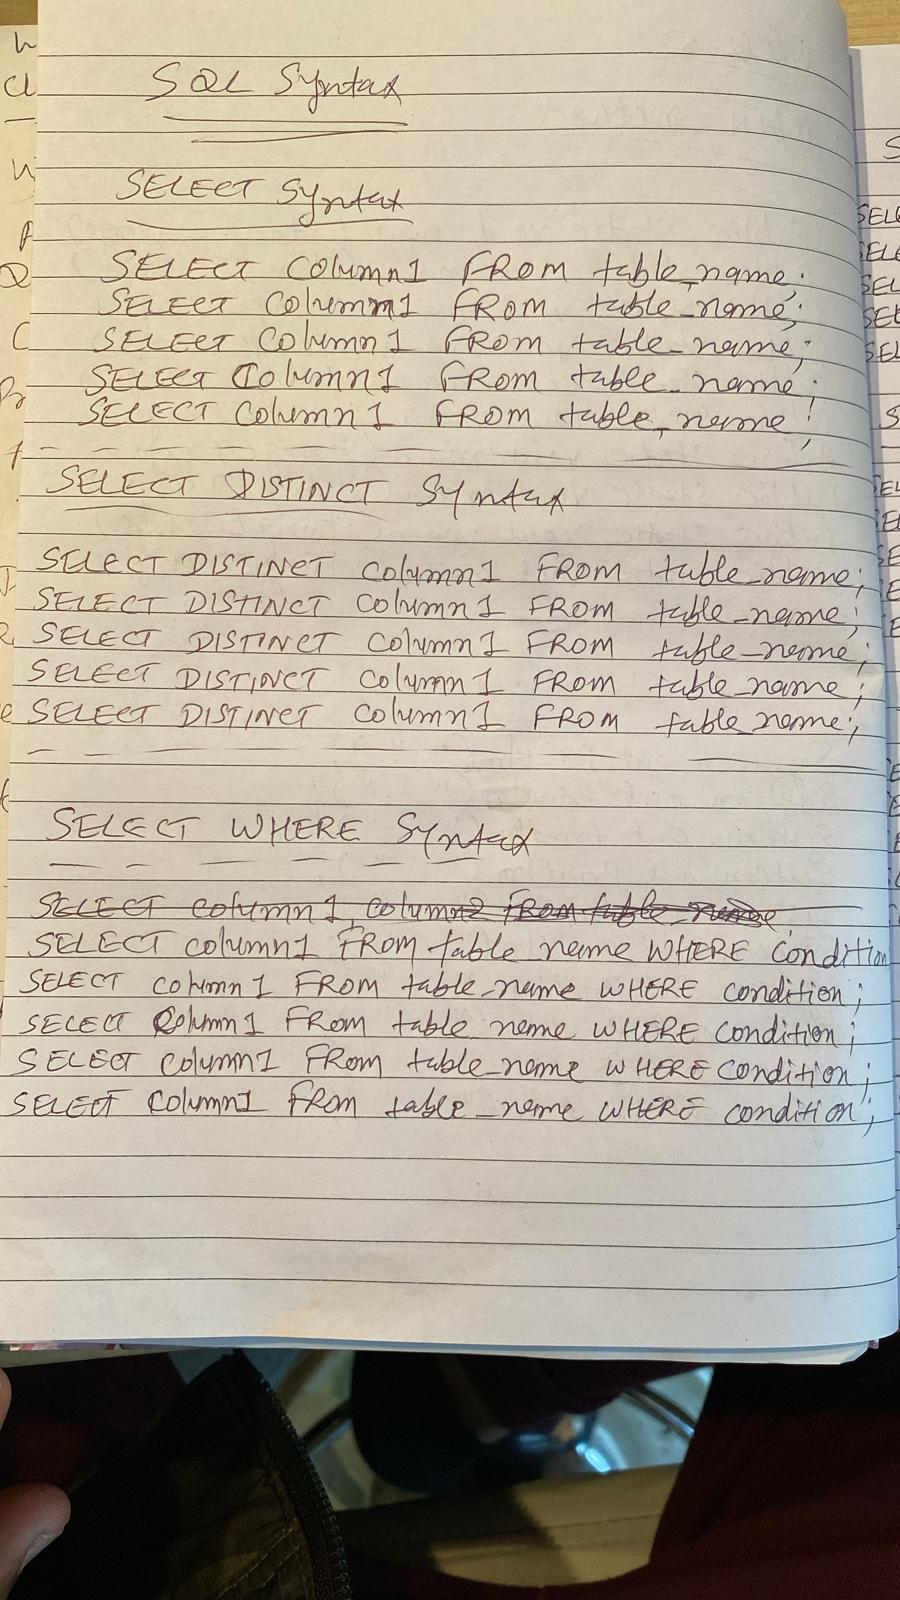 SQL Syntax
SELECT Syntax
SELECT column1 FROM table_name;
SELECT Column1 FROM table_name;
SELECT Column1 FROM table_name;
SELECT Column1 FROM table_name;
SELECT Column1 FROM table_name;
SELECT DISTINCT Syntax
SELECT DISTINCT column1 FROM table_name;
SELECT DISTINCT column1 FROM table_name;
SELECT DISTINCT column1 FROM table_name;
SELECT DISTINCT column1 FROM table_name;
SELECT DISTINCT column1 FROM table_name;
SELECT WHERE Syntax
SELECT column1, column2 FROM table_name
SELECT column1 FROM table_name WHERE condition
SELECT column1 FROM table_name WHERE condition;
SELECT Column1 FROM table_name WHERE condition;
SELECT column1 FROM table_name WHERE condition;
SELECT column1 FROM table_name WHERE condition;